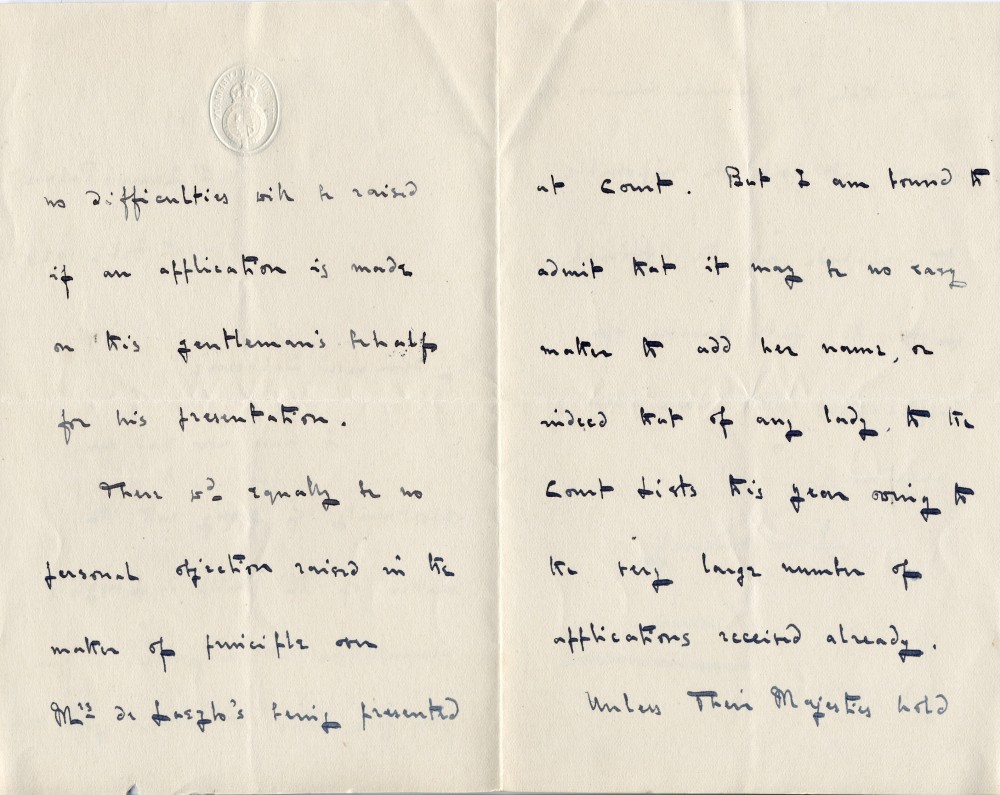 no difficulties will be raised
if an application is made
on this gentleman's behalf
for his presentation.
There wd equally be no
personal objection raised in the
matter of principle over
Mrs de Laszlo's being presented
at Court. But I am bound to
admit that it may be no easy
matter to add her name, or
indeed that of any lady, to the
Court Lists this year owing to
the very large number of
applications received already.
Unless Their Majesties hold